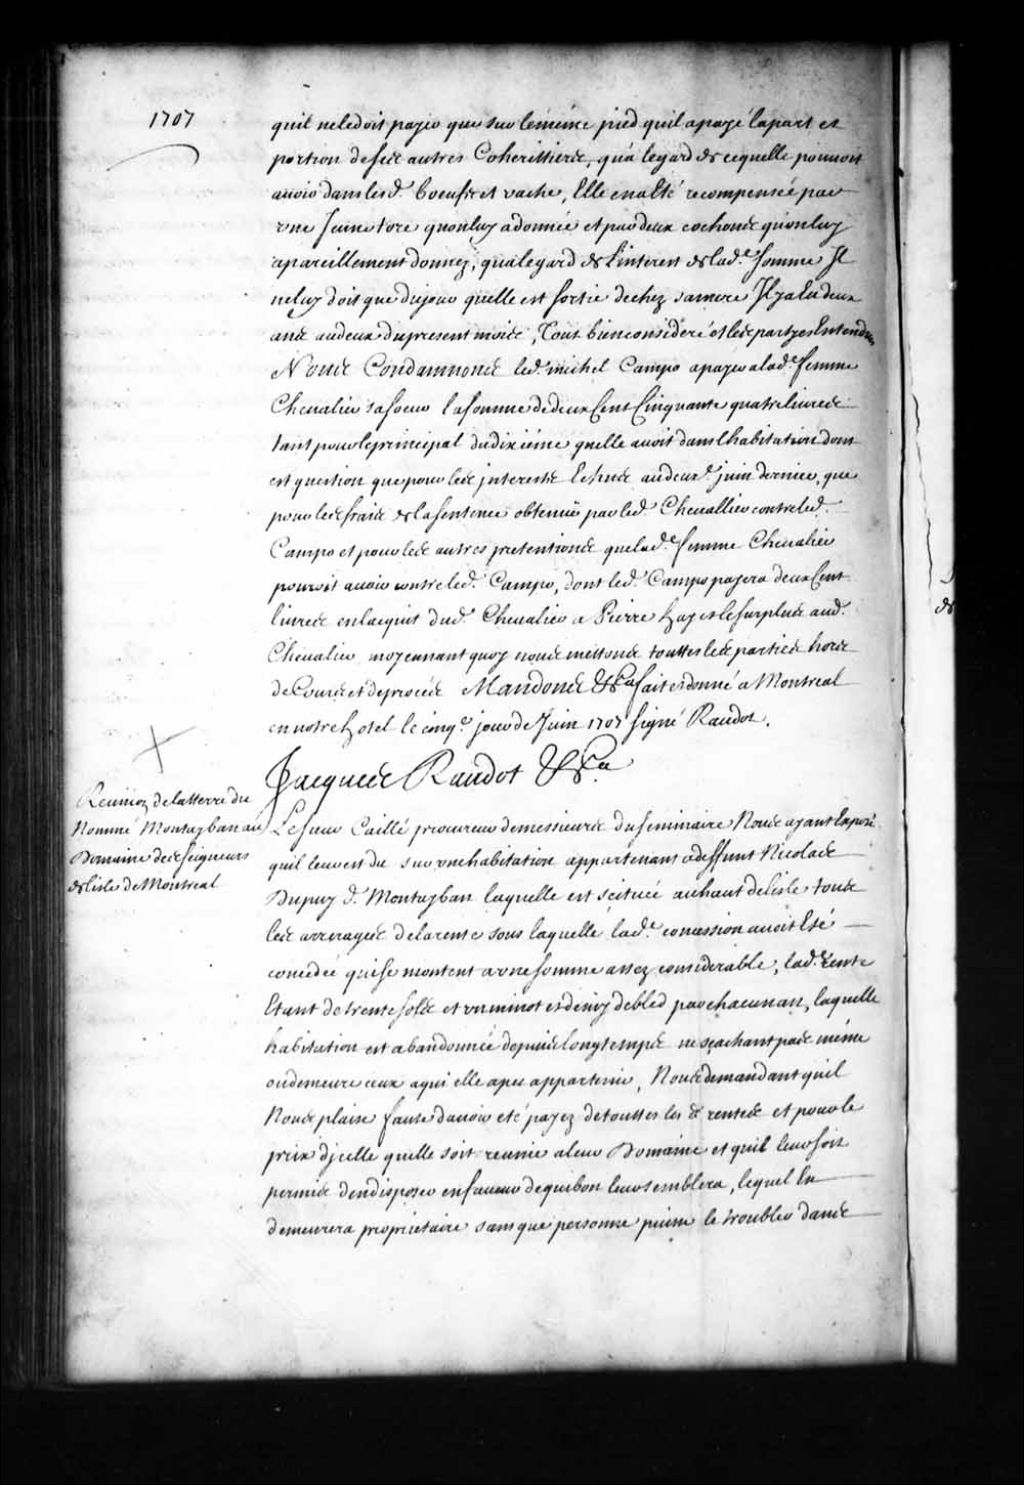 1707
quil neledoit payer que sur leméme pied quil apayé lapart et
portion deses autres Coherittiers, qua legard de cequelle pouuoit
auoir dans lesd. boeufs et vache, Elle enaEté recompensée par
vne Jeune tore quonluy adonnée et par deux cochons quonluy
apareillement donnez, qualegard de Linterest de lad.e somme Jl
neluy doit que dujour quelle est sortie dechez samere Jlya Eu deux
ans audeux dupresent mois, Tout bien consideré et les partyes Entendues
Nous Condamnons led. michel Campo apayer alad.e femme
Cheualier sa soeur la somme de deux Cent Cinquante quatre liures
tant pour leprincipal dudixiéme quelle auoit dans lhabitation dont
est question que pour les jnterests Echus audeux.e juin dernier, que
pour les frais de la sentence obtenüe par led. Cheuallier contre led.
Campo et pour les autres pretentions que lad.e femme Cheualier
pouroit auoir contre led. Campo, dont led. Campo payera deux Cent
liures enlacquit dud. Cheualier a Pierre hay et le surplus aud.
Cheualier moyennant quoy nous mettons touttes les parties hors
de Cour et deprocés Mandons &ca fait et donné a Montreal
en notre hotel le cinq.e jour de Juin 1707 signé Raudot.
Jacques Raudot &ca
Reunion de la terre du
Nommé Montayban au
Domaine des seigneurs
de lisle de Montreal
Le sieur Caillé procureur demessieurs du seminaire Nous ayant Exposé
quil leur est du sur vne habitation appartenant adeffunt Nicolas
Dupuy d. Montayban laquelle est scituée au haut delisle tous
les arrerages delarente sous laquelle lad.e concession auoit Eté
concedée qui se montent a vne somme assez considerable, lad. Rente
Etant de trente sols et vn minot et demy de bled par chacun an, laquelle
habitation est abandonnée depuis longtemps ne sçachant pas méme
ou demeure ceux a qui elle a peu appartenir, Nous demandant quil
Nous plaise faute dauoir eté payez de touttes les d. rentes et pour le
prix djcelle quelle soit reunie a leur Domaine et quil leur soit
permis den disposer en faueur de qui bon leur semblera, lequel En
demeurera proprietaire sans que personne puisse le troubler dans